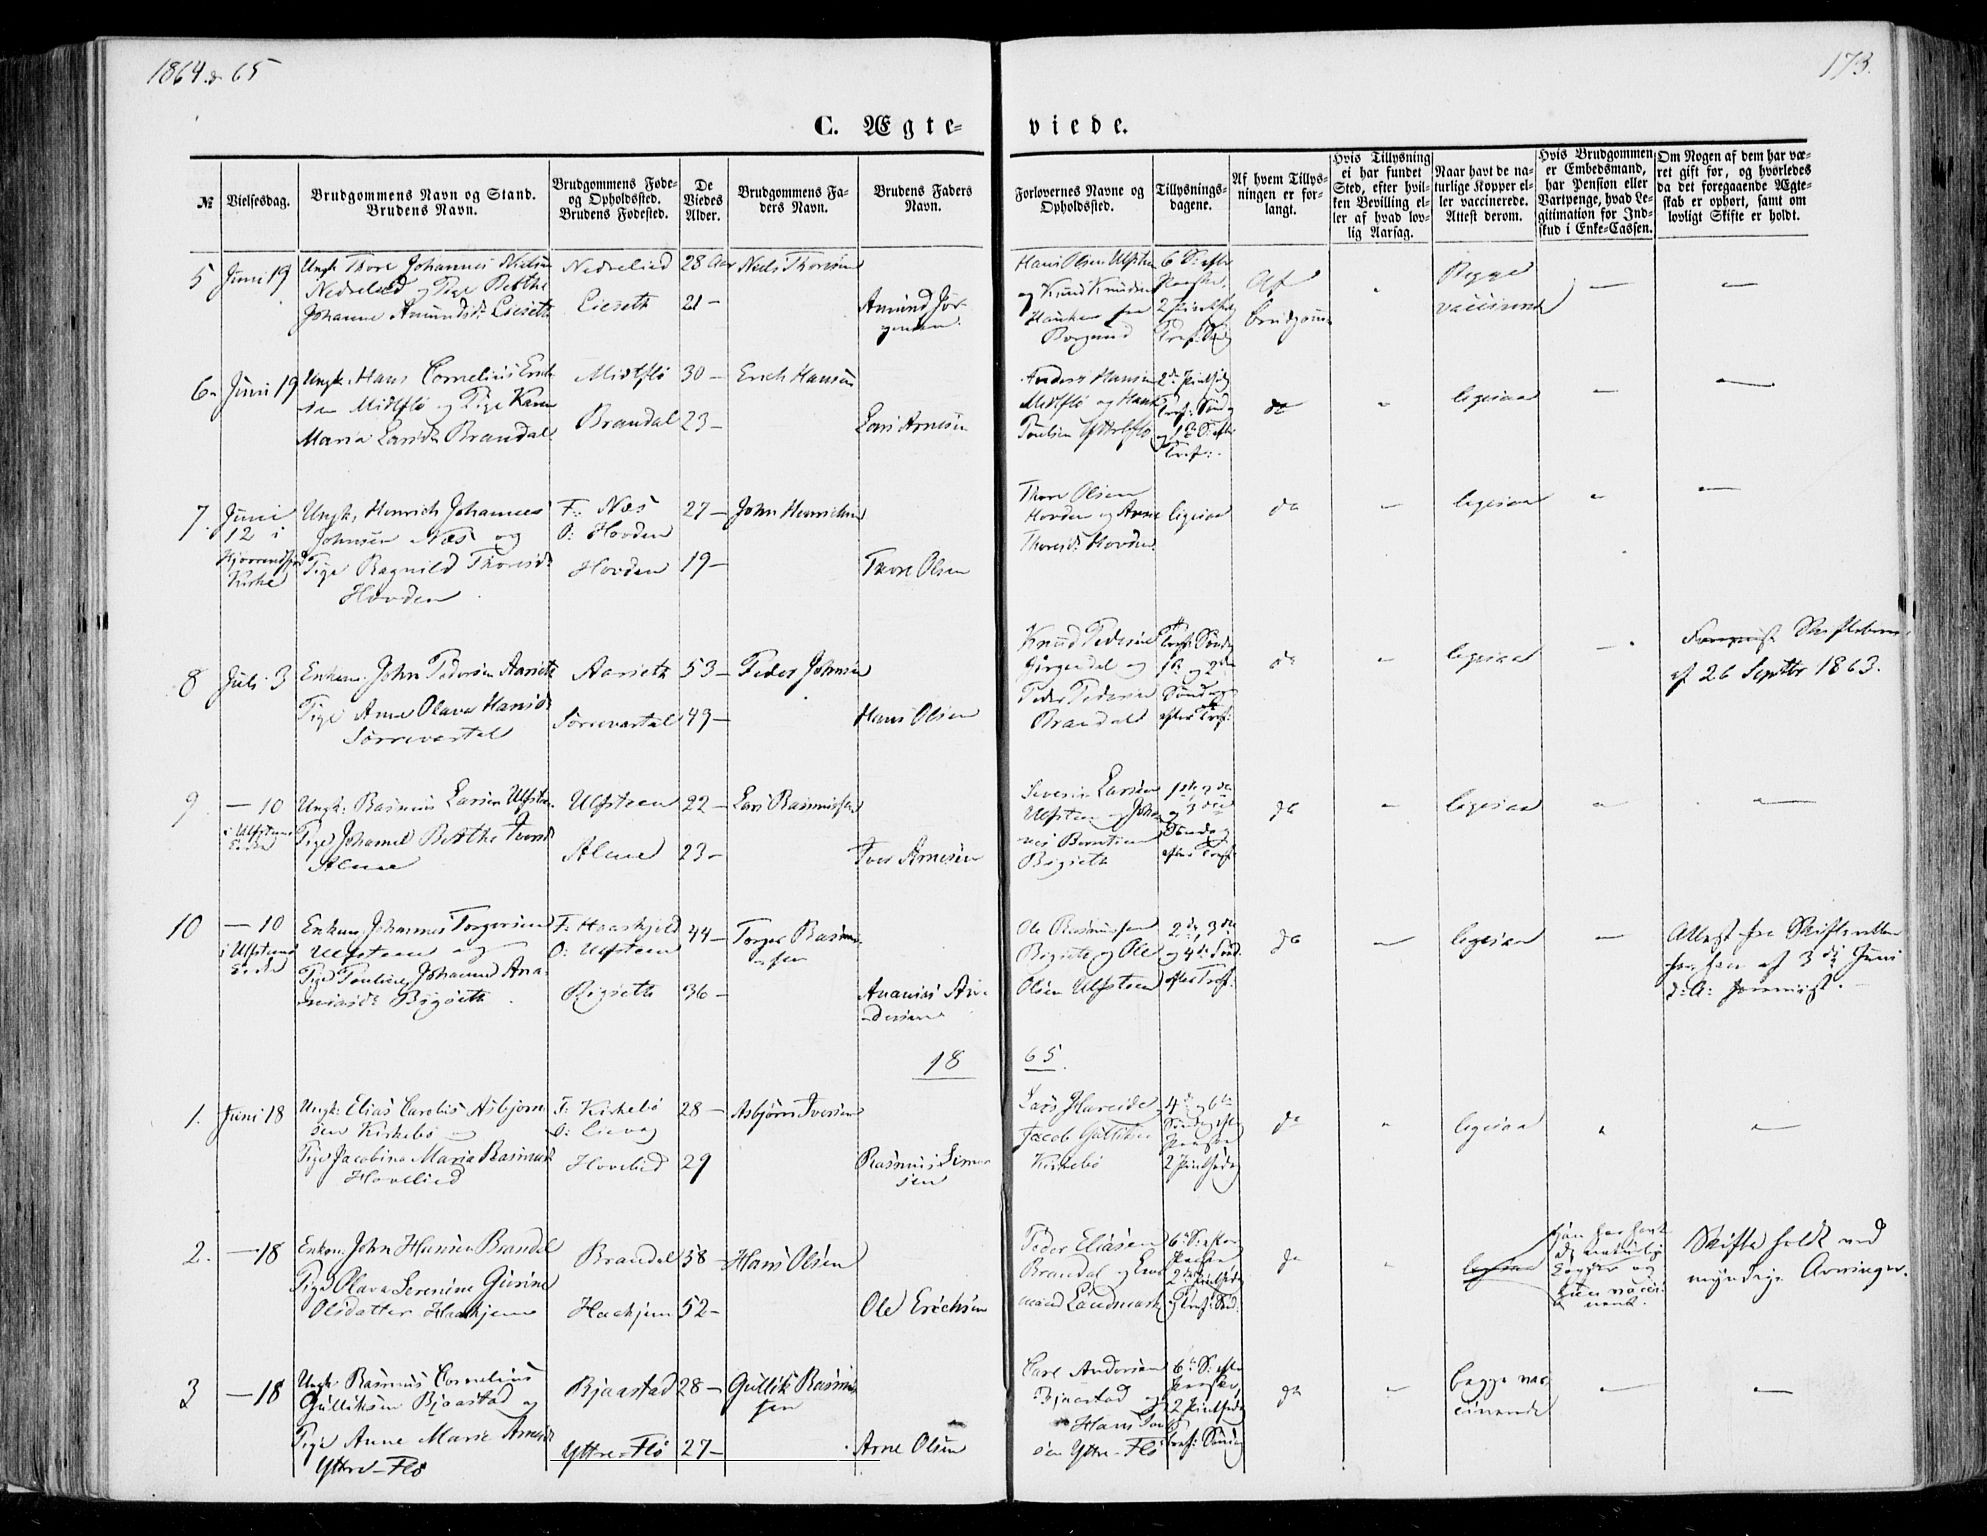 1864 & 65
173.
C. Ægte-
viede.
№
Vielsesdag.
Brudgommens Navn og Stand.
Brudens Navn.
Brudgommens Føde-
og Opholdssted.
Brudens Fødested.
De
Viedes
Alder.
Brudgommens Fa-
ders Navn.
Brudens Faders
Navn.
Forlovernes Navne og
Opholdssted.
Tillysnings-
dagene.
Af hvem Tillys-
ningen er for-
langt.
Hvis Tillysning
ei har fundet
Sted, efter hvil-
ken Bevilling el-
ler af hvad lov-
lig Aarsag.
Naar havt de na-
turlige Kopper el-
ler vaccinerede.
Attest derom.
Hvis Brudgommen
er Embedsmand,
har Pension eller
Vartpenge, hvad Le-
gitimation for Ind-
skud i Enke-Cassen.
Om Nogen af dem har væ-
ret gift før, og hvorledes
da det foregaaende Ægte-
skab er ophørt, samt om
lovligt Skifte er holdt.
5
Juni 19
Ungk. Thore Johannes Nielsen
Nedrelied og Pige Berthe
Johanne Amundsd: Lieseth
Nedrelied
Lieseth
28 Aar
21 —
Niels Thoresen
Amund Jør-
gensen.
Hans Olsen Ulfsten
og Knud Knudsen
Hauken fra
Borgund
6 S: efter
Paaske,
2 Pintsedag
Tref: Søndag
Af
brudgom
"
Begge
vaccinered
—
—
6.
Juni 19
Ungk. Hans Cornelius Erich-
sen Midtflø og Pige Karen
Maria Larsd: Brandal
Midtflø
Brandal
30 —
23 —
Erich Hansen
Lars Arnesen
Anders Hansen
Midtflø og Hans
Poulsen Ytterflø
2den Pintsedag
Tref: Søndag
og 1te S: efter
Tref:
do
"
ligesaa
—
—
7.
Juni
12 i
Hjørrendfjord
Kirke
Ungk. Henrich Johannes
Johnsen Næs og
Pige Ragnild Thoresd:
Hovden
F: Næs
O: Hovden
Hovden
27 —
19 —
John Henrichsen
Thore Olsen
Thore Olsen
Hovden og Arne
Thoresd: Hovden.
ligesaa
do
—
ligesaa
"
—
8
Juli 3
Enkem. John Pedersen Aarseth
Pige Anne Olava Hansd:
Sørrevartal
Aarseth
Sørrevartal
53 —
49 —
Peder Johnsen
Hans Olsen
Knud Pedersen
Gjørgendal og
Peder Pedersen
Brandal
Tref: Søndag
1te og 2den
Søndag
efter Tref:
do
—
ligesaa
—
Skiftebrev
af 26 Septbr 1863.
9.
— 10
i Ulfstens
Kirke
Ungk: Rasmus Larsen Ulfsten
Pige Johanne Berthe Iversd:
Alme
Ulfsteen
Alme
22 —
23 —
Lars Rasmussen
Iver Arnesen
Severin Larsen
Ulfsteen og Johan-
nes Berntsen
Bigseth
1ste, 2den
og 3die
Søndag
efter Tref:
do
"
ligesaa
"
—
10
— 10
i Ulfstens
Kirke
Enkem. Johannes Torgersen
Ulfsteen og
Pige Pauline Johanne Ana-
niasd: Bigseth
F: Haaskjold
O: Ulfsteen
Bigseth
44 —
36 —
Torger Rasmus-
sen
Ananias An-
dersen
Ole Rasmussen
Bigseth og Ole
Olsen Ulfsteen
2den, 3die
og 4de Sønd.
efter Tref:
do
—
ligesaa
—
Attest fra Skifteretten
af 3die Juni
d: A:
18
65.
1.
Juni 18
Ungk: Elias Carolus Asbjørn-
sen Kirkebø og
Pige Jacobine Maria Rasmusd:
Hovelied
F: Kirkebø
O: Lievag
Hovelied
28 —
29
Asbjørn Iversen
Rasmus Simon-
sen
Lars Hareide
Jacob
Kirkebø
4de og 6te
Søndag efter
Paaske
2 Pintsedag
do
"
ligesaa
"
—
2.
— 18
Enkem. John Hansen Brandal
Pige Olava Serenine Gurine
Olsdatter Haakjem
Brandal
Haakjem
58 —
52 —
Hans Olsen
Ole Erichsen
Peder Eliasen
Brandal og
Landmark
6te S: efter
Paaske
2den Pintsedag
og Tref: Sønd.
do
"
ligesaa
han har havt
de naturlige
Kopper og
hun vacci-
neret.
Skifte holdt ved
myndige Arvinger.
3
— 18
Ungk Rasmus Cornelius
Gulliksen Bjaastad og
Pige Anne Marie Arnesd:
Yttre-Flø
Bjaastad
Yttre-Flø
28 —
27 —
Gullik Rasmus-
sen
Arne Olsen
Carl Andersen
Bjaastad og
Hans Poul-
sen Yttre-Flø
6te S: efter
Paaske,
2 Pintsedag
Tref: Søndag
do
"
begge vac-
cinerede
—
—